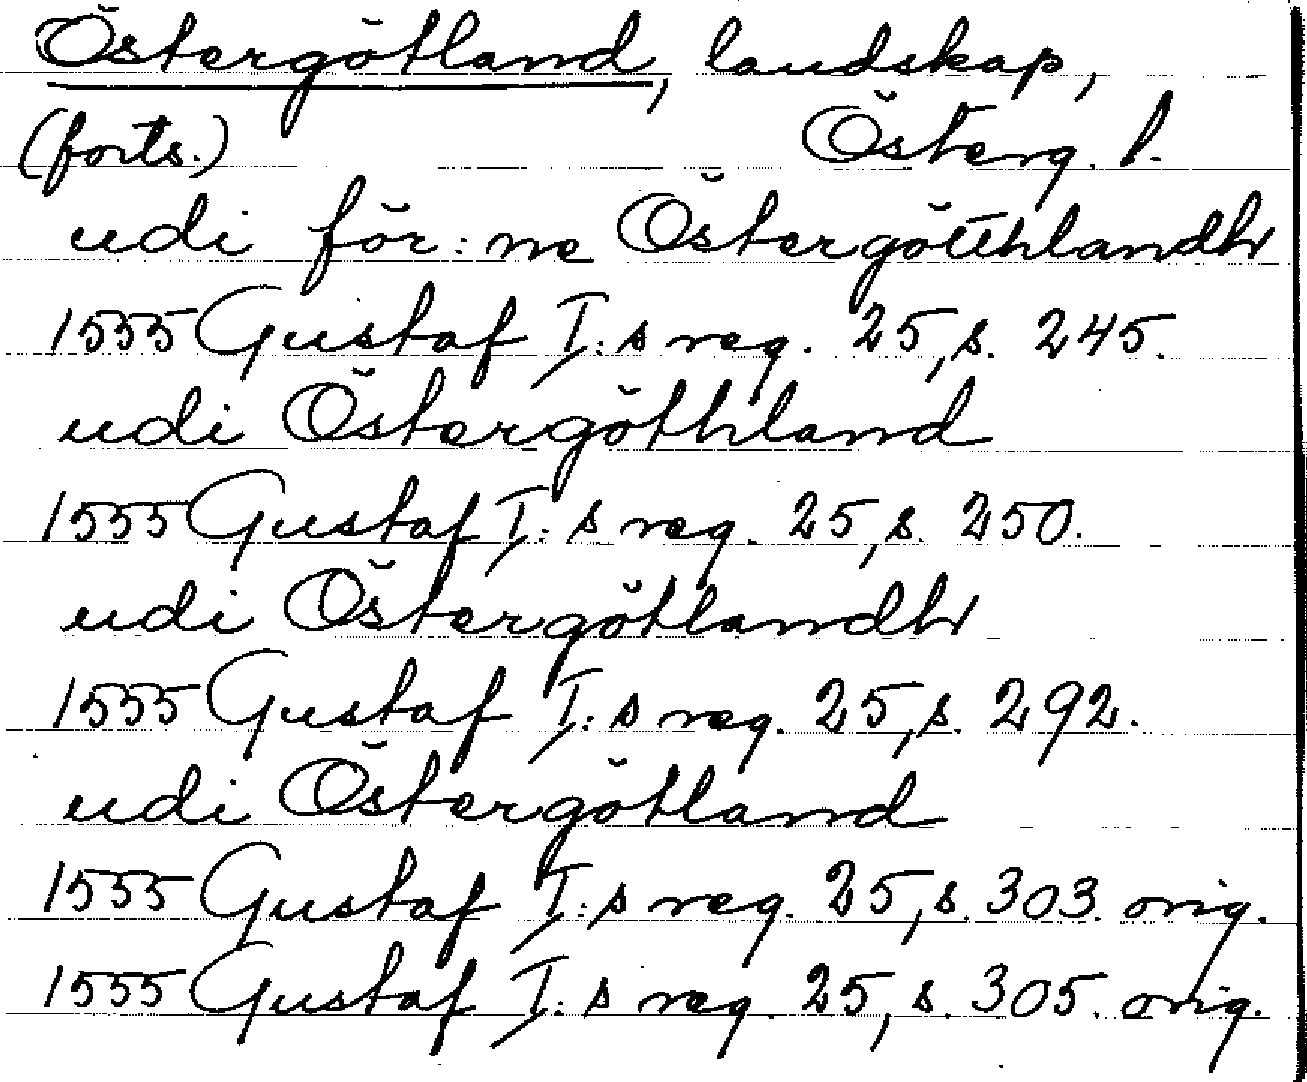 Östergötland, landskap,
(forts.) Österg. l.
udi för:ne Östergötthlandh
1555 Gustaf I:s reg. 25, s. 245.
udi Östergöthland
1555 Gustaf I:s reg. 25, s. 250.
udi Östergötlandh
1555 Gustaf I:s reg. 25, s. 292.
udi Östergötland
1555 Gustaf I:s reg. 25, s. 303. orig.
1555 Gustaf I:s reg. 25, s. 305. orig.